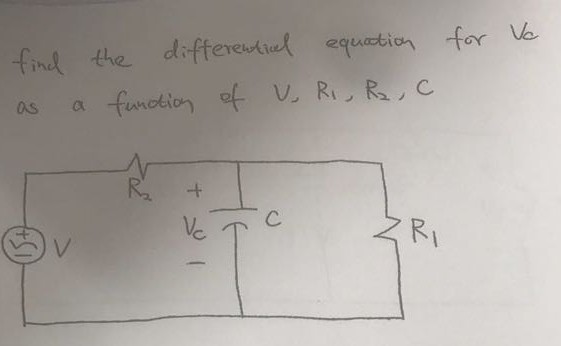 find the differential equation for Vc
as a function of V, R1, R2, C
R2
+
Vc
-
C
R1
+
-
V